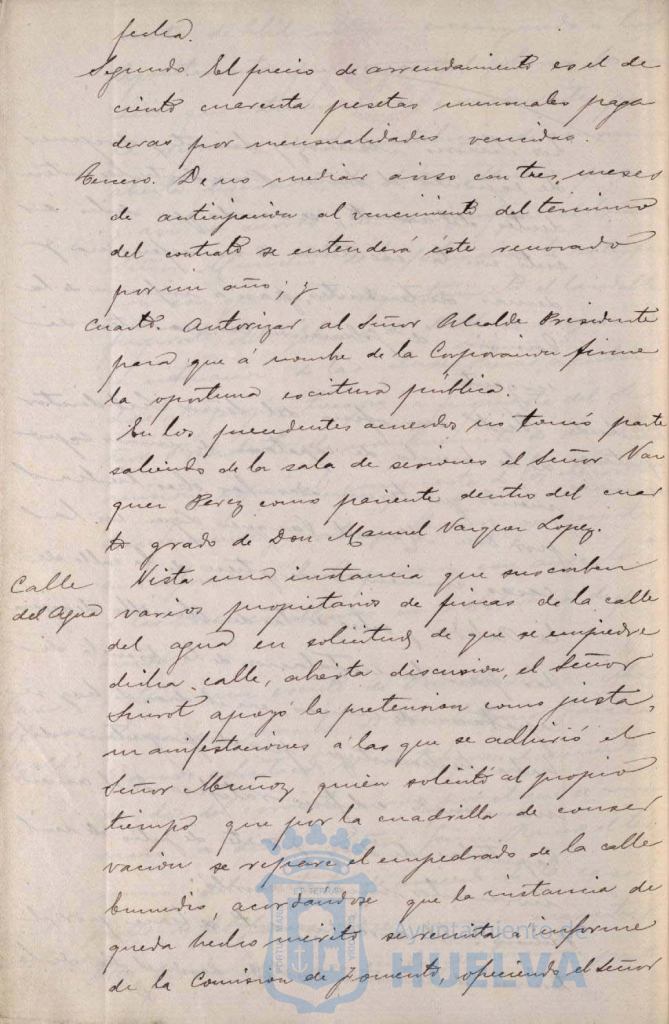 fecha.
Segundo. El precio de arrendamiento es el de
ciento cuarenta pesetas mensuales paga
deras por mensualidades vencidas.
Tercero. De no mediar aviso con tres meses
de anticipacion al vencimiento del termino
del contrato se entenderá éste renovado
por un año; y
Cuarto. Autorizar al Señor Alcalde Presidente
para que á nombre de la Corporacion firme
la oportuna escritura pública.
En los precedentes acuerdos no tomó parte
saliendo de la sala de sesiones el Señor Vaz
quez Perez como pariente dentro del cuar
to grado de Don Manuel Vazquez Lopez.
Calle
del Agua
Vista una instancia que suscriben
varios propietarios de fincas de la calle
del agua en solicitud de que se empiedre
dicha calle, abierta discusion, el Señor
apoyó la pretension como justa,
manifestaciones á las que se adhirió el
Señor Muñoz quien solicitó al propio
tiempo que por la cuadrilla de conser
vacion se repare el empedrado de la calle
acordándose que la instancia de
queda hecho mérito se remita á informe
de la Comision de Fomento, ofreciendo el Señor
Ayuntamiento de
HUELVA